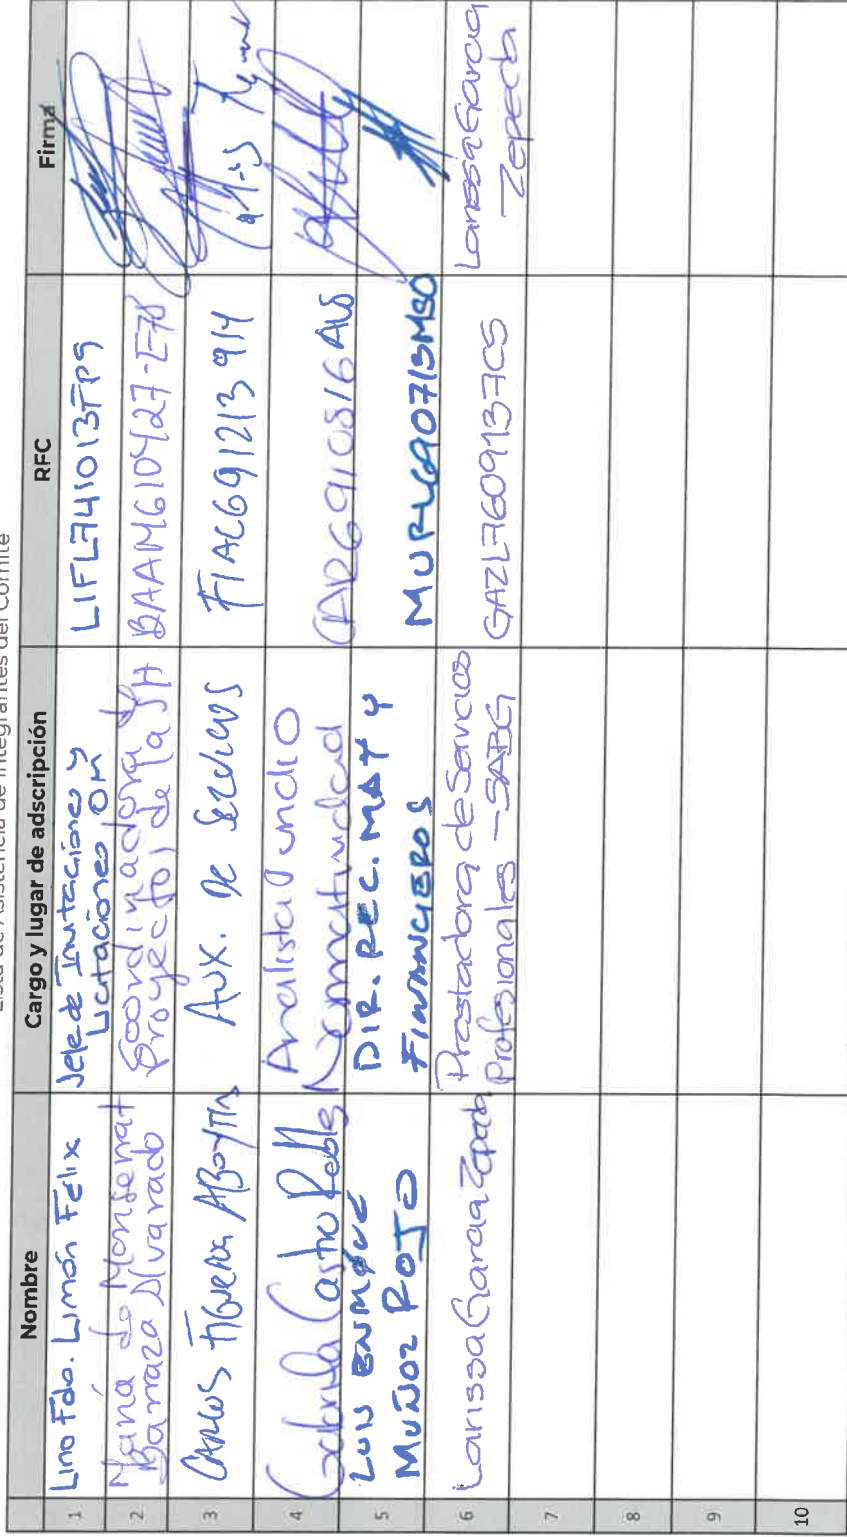 Lista de Asistencia de Integrantes del Comité
Nombre Cargo y lugar de adscripción RFC Firma
1 Lino Fdo. Limón Felix Jefe de Invitaciones y Licitaciones OM LIFL741013FP9
2 María de Monserrat Barraza Alvarado Coordinadora de Proyectos de la SH BAAM610427-E78
3 CARLOS FIGUEROA ABOYTIA AUX. DE SERVICIOS FIAC691213 914
4 Gabriela Castro Robles Analista Normatividad CARG910816AU5
5 LUIS ENRIQUE MUÑOZ ROJO DIR. REC. MAT Y FINANCIEROS MURL690713MS0
6 Larissa Garcia Zepeda Prestadora de Servicios Profesionales - SABG GAZL7609137C5 Larissa Garcia Zepeda
7
8
9
10